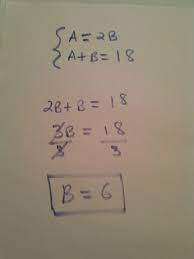 A = 2B
A + B = 18
2B + B = 18
3B = 18
3 3
B = 6